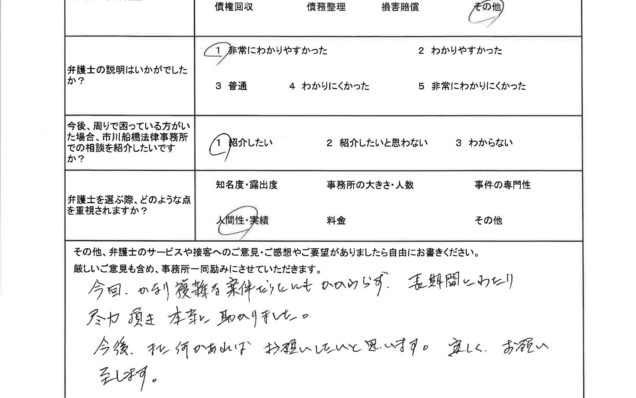 債権回収 債務整理 損害賠償 その他
弁護士の説明はいかがでしたか?
1 非常にわかりやすかった 2 わかりやすかった
3 普通 4 わかりにくかった 5 非常にわかりにくかった
今後、周りで困っている方がいた場合、市川船橋法律事務所での相談を紹介したいですか?
1 紹介したい 2 紹介したいと思わない 3 わからない
弁護士を選ぶ際、どのような点を重視されますか?
知名度・露出度 事務所の大きさ・人数 事件の専門性
人間性・実績 料金 その他
その他、弁護士のサービスや接客へのご意見・ご感想やご要望がありましたら自由にお書きください。
厳しいご意見も含め、事務所一同励みにさせていただきます。
今回、かなり複雑な案件だったにもかかわらず、長期間にわたり
尽力頂き 本当に助かりました。
今後、又何かあれば お願いしたいと思います。 宜しく お願い
至します。